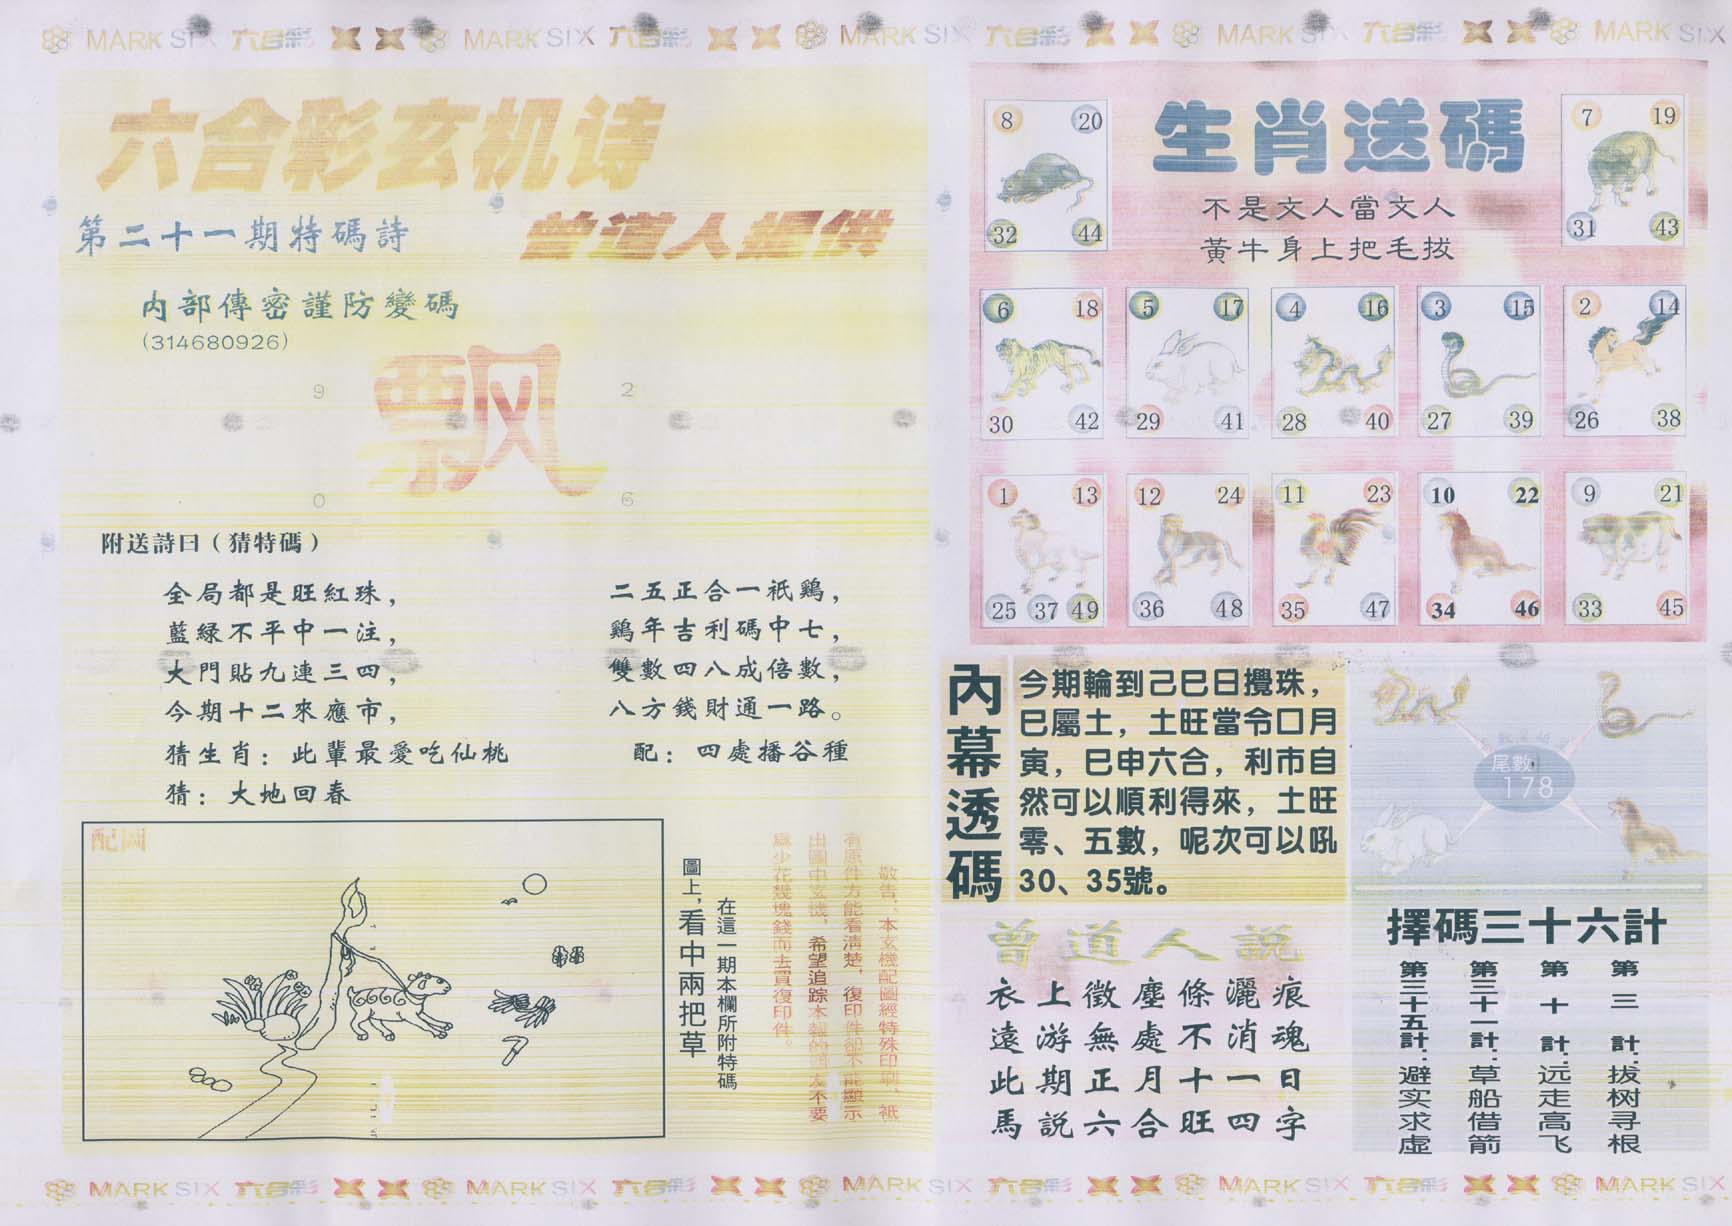 MARK SIX 六合彩 MARK SIX 六合彩 MARK SIX 六合彩 MARK SIX 六合彩 MARK SIX
六合彩玄机诗
第二十一期特碼詩
曾道人提供
内部傳密謹防變碼
(314680926)
9 2
飘
0 6
附送詩曰（猜特碼）
全局都是旺紅珠，
藍綠不平中一注，
大門貼九連三四，
今期十二來應市，
二五正合一祇鷄，
鷄年吉利碼中七，
雙數四八成倍數，
八方錢財通一路。
猜生肖：此輩最愛吃仙桃
配：四處播谷種
猜：大地回春
配圖
圖上，看中兩把草
在這一期本欄所附特碼
敬告：本玄機配圖經特殊印刷，祇
有原件方能看清楚，復印件卻不能顯示
出圖中玄機，希望追踪本報的朋友不要
爲少花幾塊錢而去買復印件。
生肖送碼
不是文人當文人
黃牛身上把毛拔
8 20
32 44
7 19
31 43
6 18
30 42
5 17
29 41
4 16
28 40
3 15
27 39
2 14
26 38
1 13
25 37 49
12 24
36 48
11 23
35 47
10 22
34 46
9 21
33 45
內幕透碼
今期輪到己巳日攪珠，
巳屬土，土旺當令口月
寅，巳申六合，利市自
然可以順利得來，土旺
零、五數，呢次可以吼
30、35號。
尾數
178
曾道人説
衣上徵塵條灑痕
遠游無處不消魂
此期正月十一日
馬説六合旺四字
擇碼三十六計
第三計：拔树寻根
第十計：远走高飞
第三十一計：草船借箭
第三十五計：避实求虚
MARK SIX 六合彩 MARK SIX 六合彩 MARK SIX 六合彩 MARK SIX 六合彩 MARK SIX